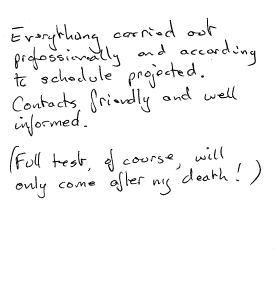 Everything carried out
professionally and according
to schedule projected.
Contacts friendly and well
informed.
(Full test, of course, will
only come after my death!)